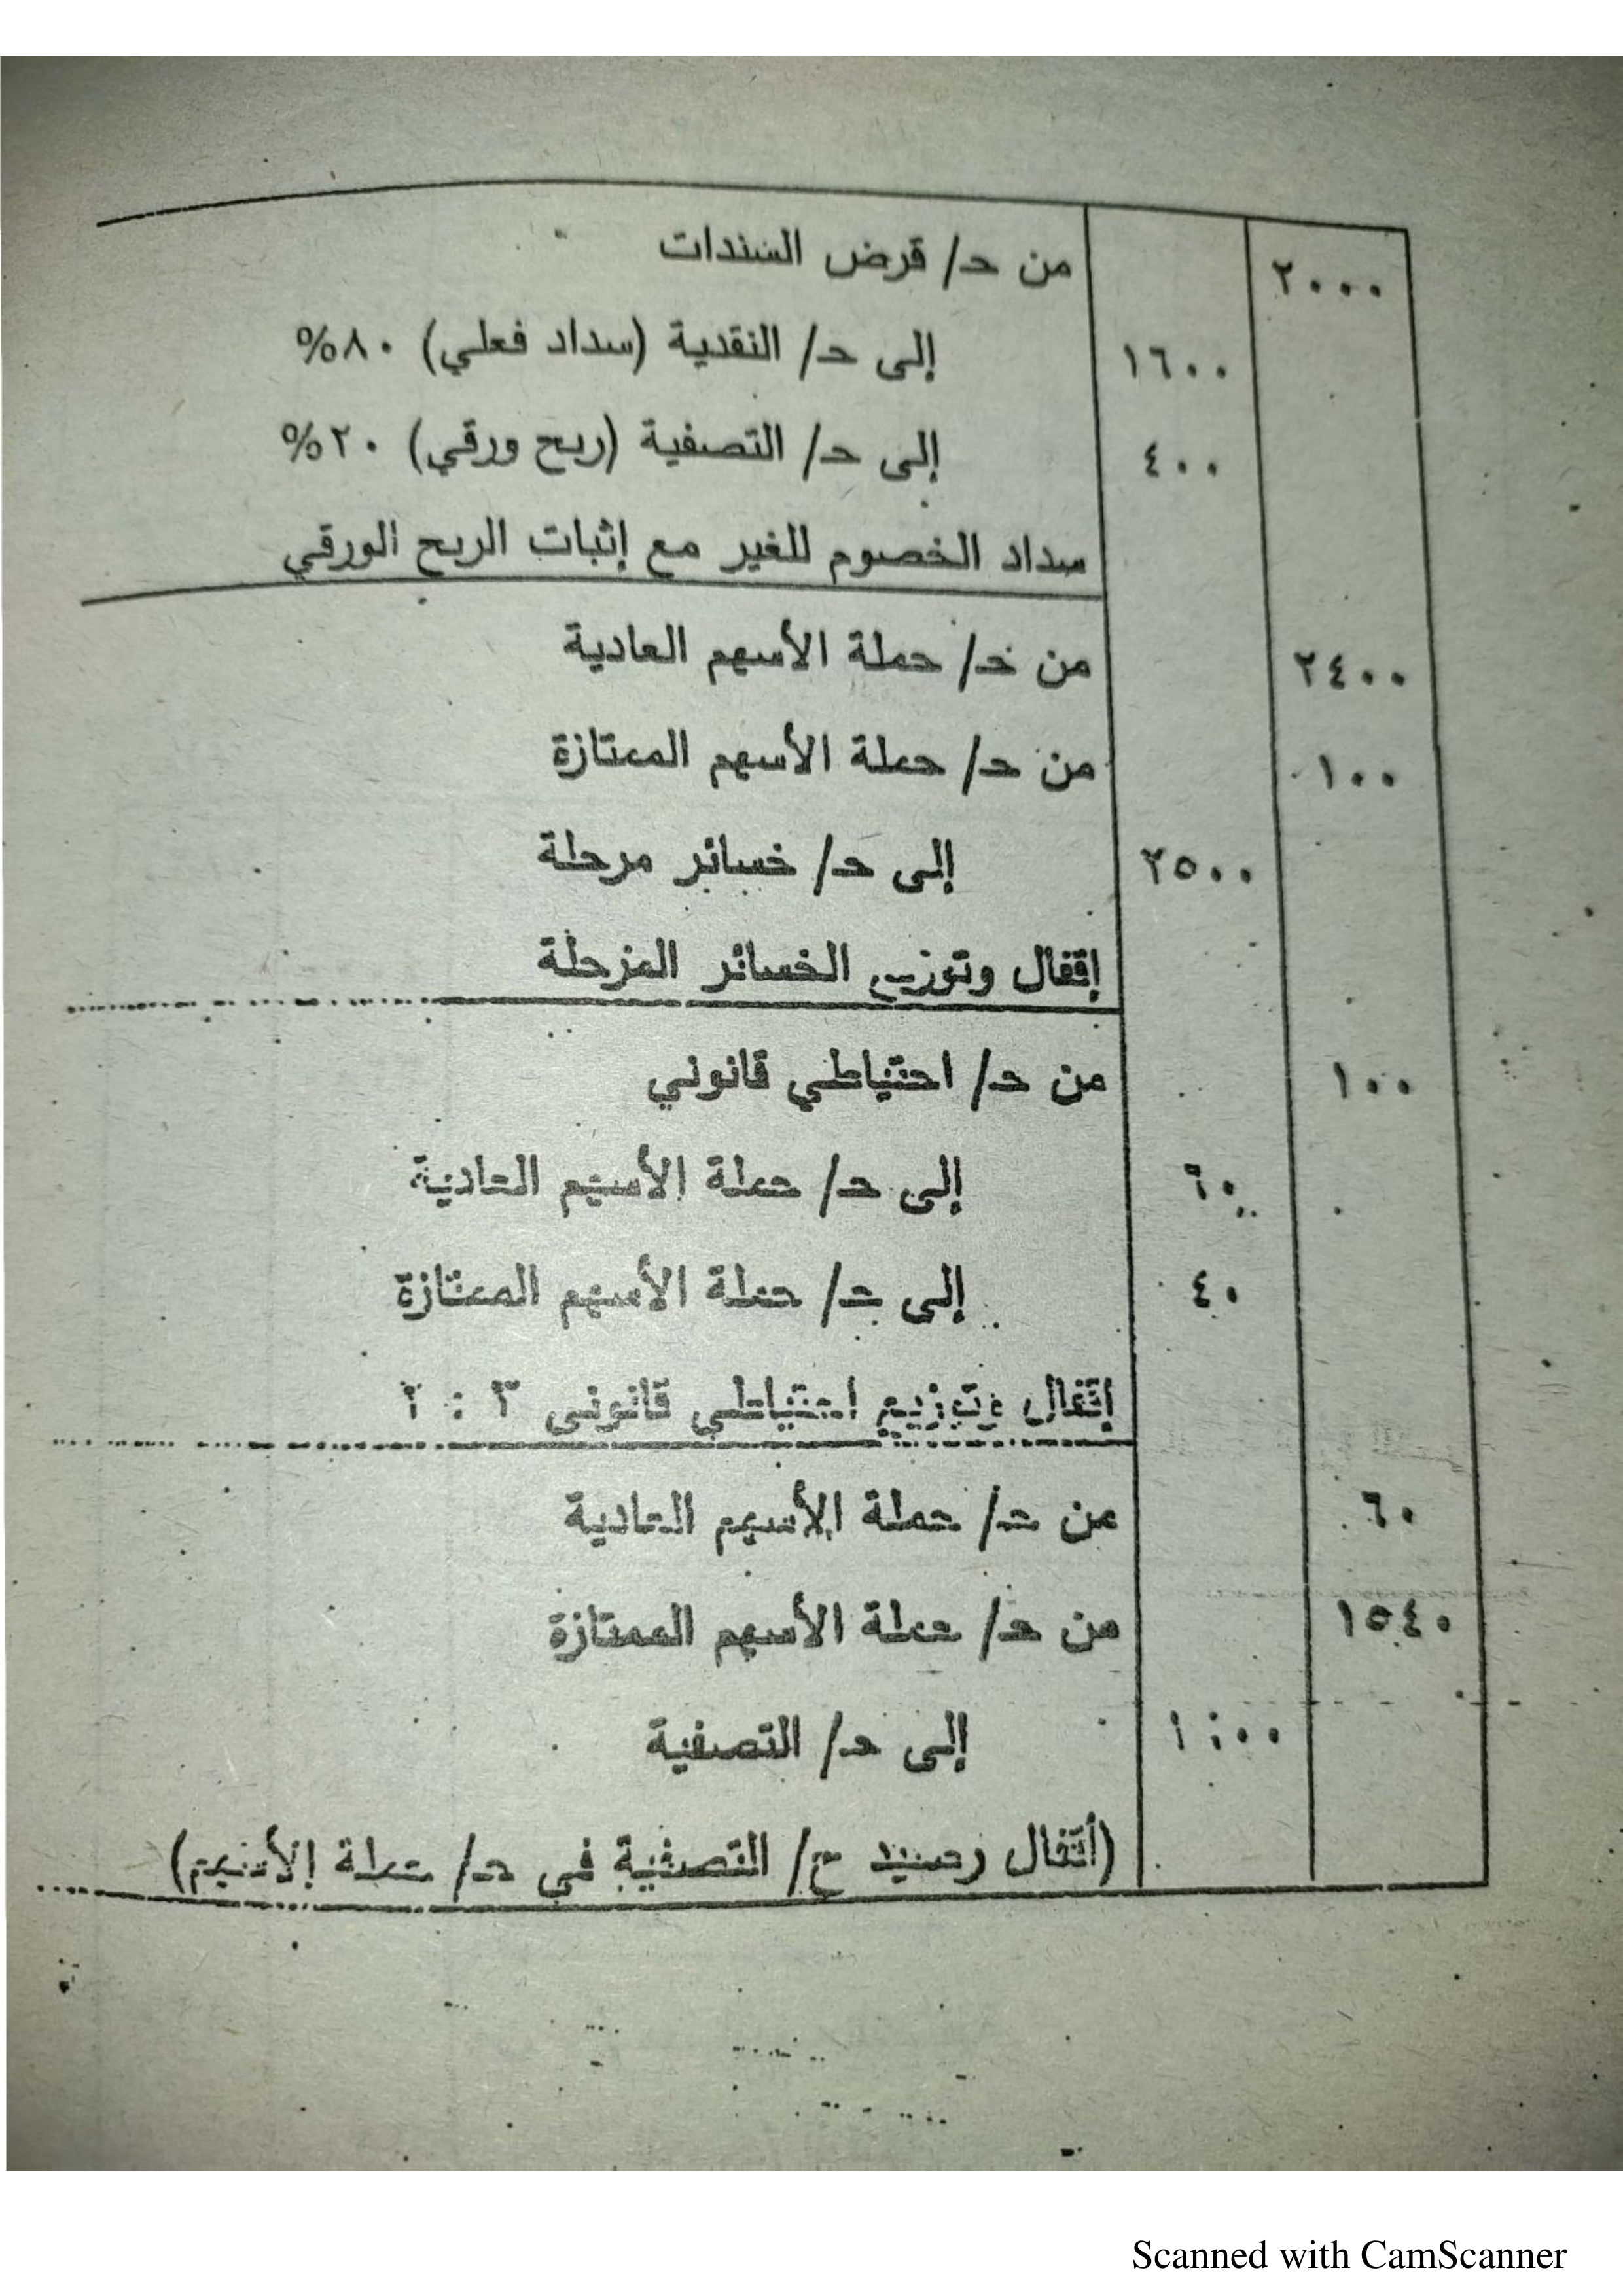 ٢٠٠٠ من حـ/ قرض السندات
١٦٠٠ إلى حـ/ النقدية (سداد فعلي) ٨٠%
٤٠٠ إلى حـ/ التصفية (ربح ورقي) ٢٠%
سداد الخصوم للغير مع إثبات الربح الورقي
٢٤٠٠ من حـ/ حملة الأسهم العادية
١٠٠ من حـ/ حملة الأسهم الممتازة
٢٥٠٠ إلى حـ/ خسائر مرحلة
إقفال وتوزيع الخسائر المرحلة
١٠٠ من حـ/ احتياطي قانوني
٦٠ إلى حـ/ حملة الأسهم العادية
٤٠ إلى حـ/ حملة الأسهم الممتازة
إقفال وتوزيع احتياطي قانوني ٣ :
٦٠ من حـ/ حملة الأسهم العادية
١٥٤٠ من حـ/ حملة الأسهم الممتازة
إلى حـ/ التصفية
(أقفال رصيد ح/ التصفية في حـ/ حملة الأسهم)
Scanned with CamScanner